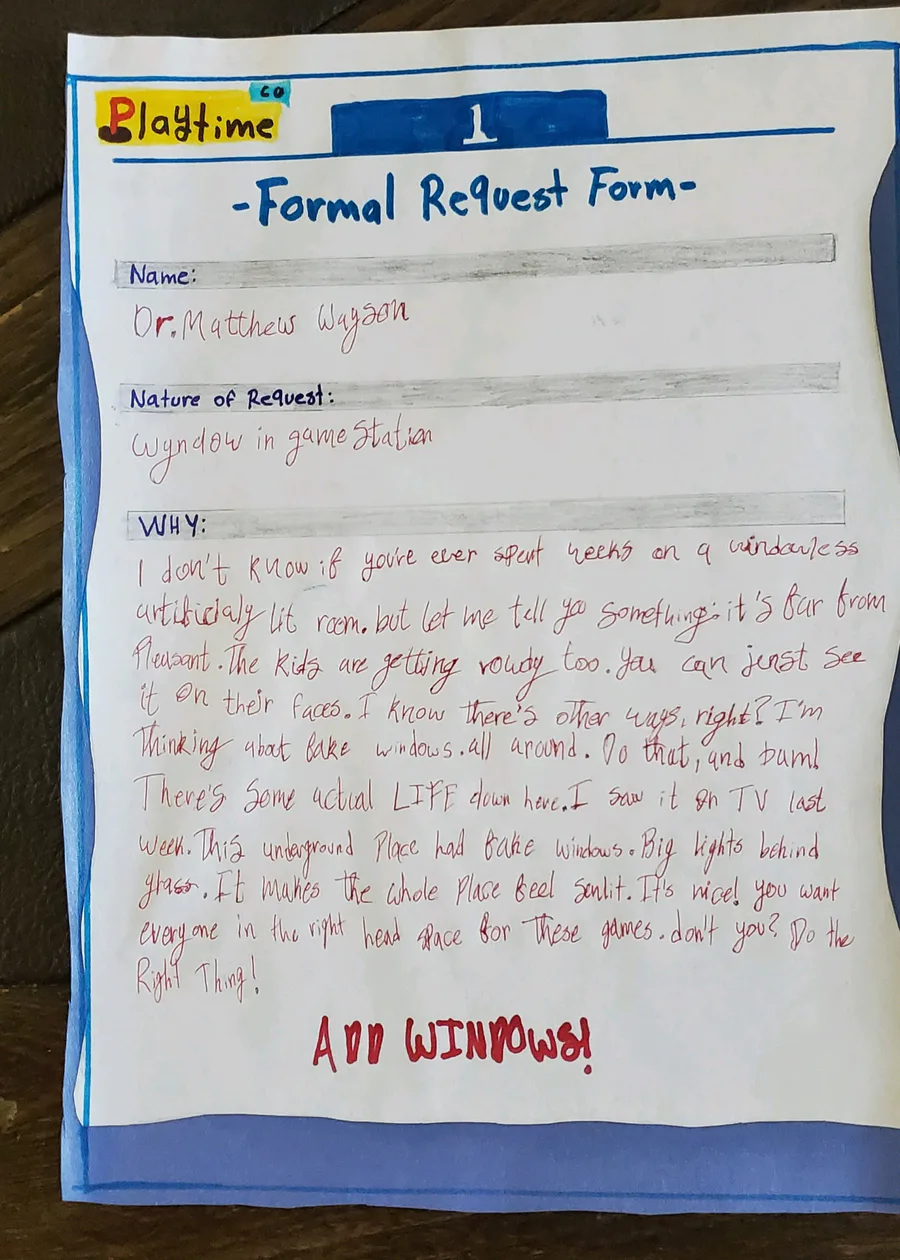 Playtime co
1
-Formal Request Form-
Name:
Dr. Matthew Wayson
Nature of Request:
Wyndow in game Station
WHY:
I don't know if you're ever spent weeks on a windowless
artificialy lit room. but let me tell you something: it's far from
Pleasant. The kids are getting rowdy too. You can see
it on their faces. I know there's other ways, right? I'm
Thinking about fake windows. all around. Do that, and bam!
There's Some actual LIFE down here. I saw it on TV last
week. This underground Place had fake windows. Big lights behind
glass. It makes the whole Place feel sunlit. It's nice! you want
everyone in the right head space for These games. don't you? Do the
Right Thing!
ADD WINDOWS!